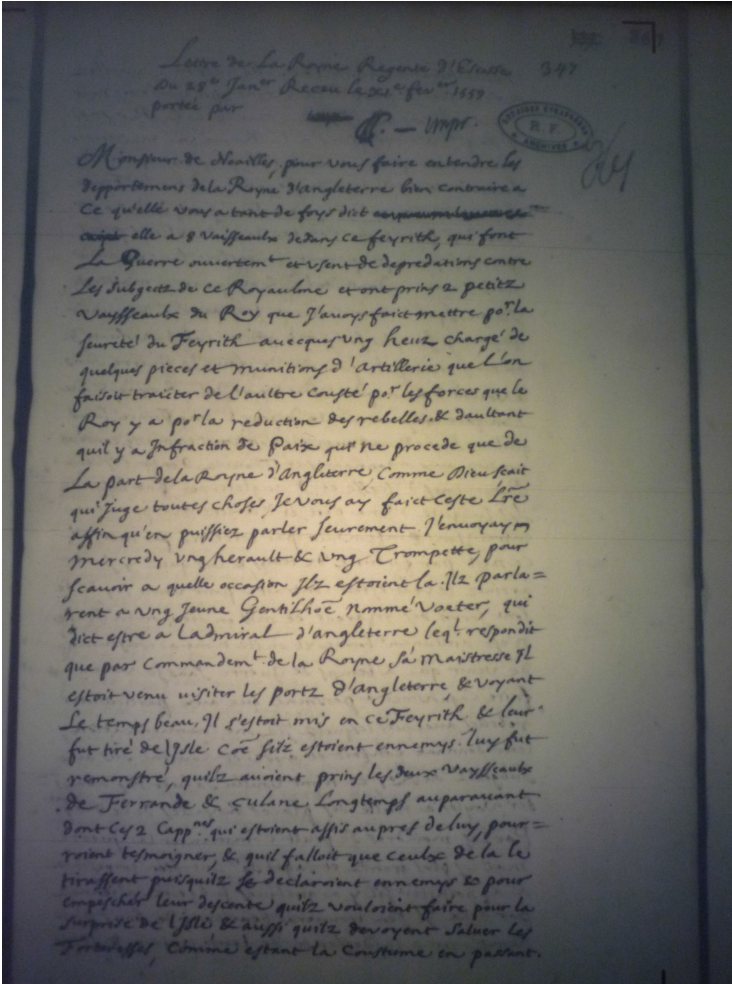 Lettre de La Royne Regente d'Escosse 347
Du 28e Janer Receu le xie fever 1559
portée par
— impr.
AFFAIRES ETRANGERES
R. F.
ARCHIVES
Monsieur de Noailles, pour vous faire entendre les
depportemens dela Royne d'angleterre bien contraire a
Ce qu'elle vous a tant de foys dict
elle a 8 vaisseaulx dedans ce feyrith, qui font
La Guerre ouvertemt et usent de depredations contre
Les subgectz de ce Royaulme et ont prins 2 petitz
vaysseaulx du Roy que j'avoys faict mettre por la
seureté du Feyrith avecques ung heuz chargé de
quelques pieces et munitions d'artillerie que L'on
faisoit traicter de l'aultre cousté por les forces que le
Roy y a por la reduction des rebelles. & daultant
quil y a Infraction de Paix qui ne procede que de
La part dela Royne d'Angleterre Comme Dieu scait
qui Juge toutes choses, Je vous ay faict Ceste Lre
affin qu'en puissiez parler seurement J'envoyay
mercredy ung herault & ung Trompette, pour
scavoir a quelle occasion Ilz estoient la. Ilz parla=
rent a ung Jeune Gentilhoe nommé Voeter, qui
dict estre a Ladmiral d'angleterre leql. respondit
que par Commandemt de la Royne sa maistresse Il
estoit venu visiter les portz d'Angleterre & voyant
Le temps beau, Il s'estoit mis en ce Feyrith & leur
fut tiré de l'Isle Coe silz estoient ennemys. luy fut
remonstré, quilz avoient prins les deux vaysseaulx
de Ferrande & Culane Longtemps auparavant
dont Ces 2 Cappnes qui estoient assis aupres de luy, pour=
roient tesmoigner, & quil falloit que ceulx de la le
tirassent puisquilz se declaroient ennemys & pour
empescher leur descente quilz vouloient faire pour la
surprise de l'Isle & aussi quilz devoyent saluer les
Forteresses, Comme estant la Coustume en passant.